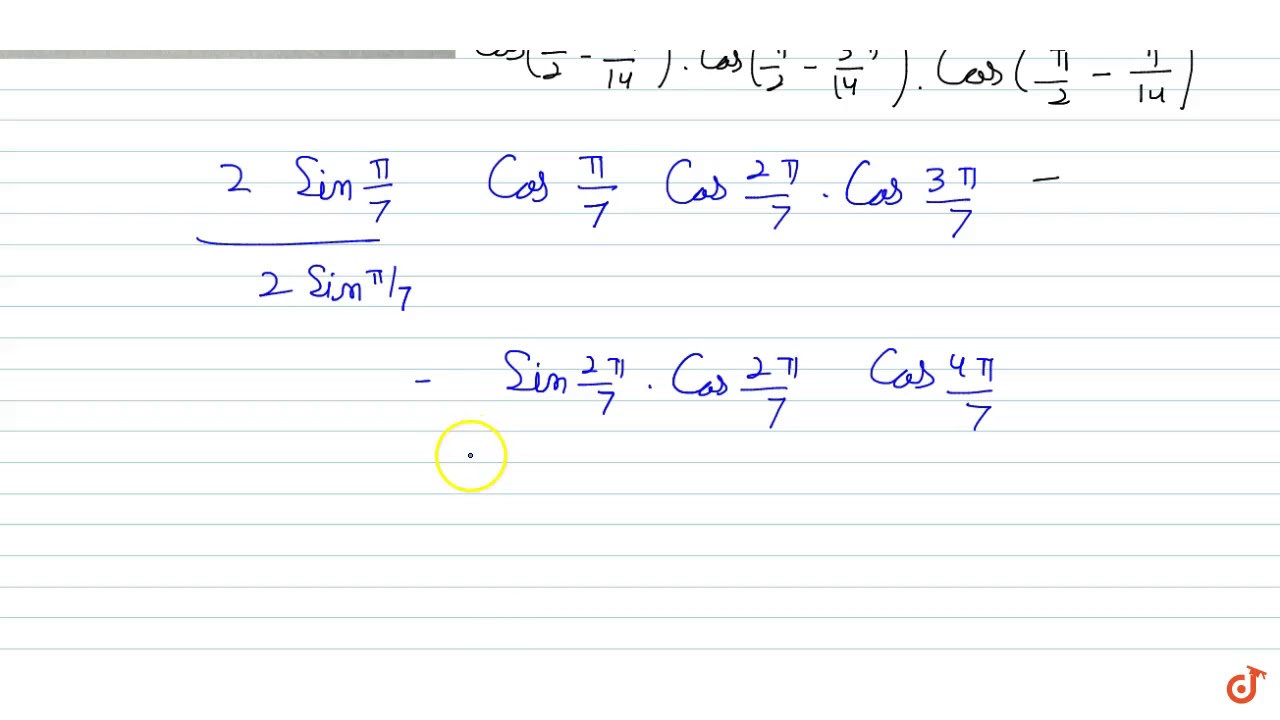 Cos(π/2 - /14). Cos(π/2 - 3/14). Cos(π/2 - π/14)
2 Sin π/7 Cos π/7 Cos 2π/7 . Cos 3π/7 -
2 Sin π/7
- Sin 2π/7 . Cos 2π/7 Cos 4π/7